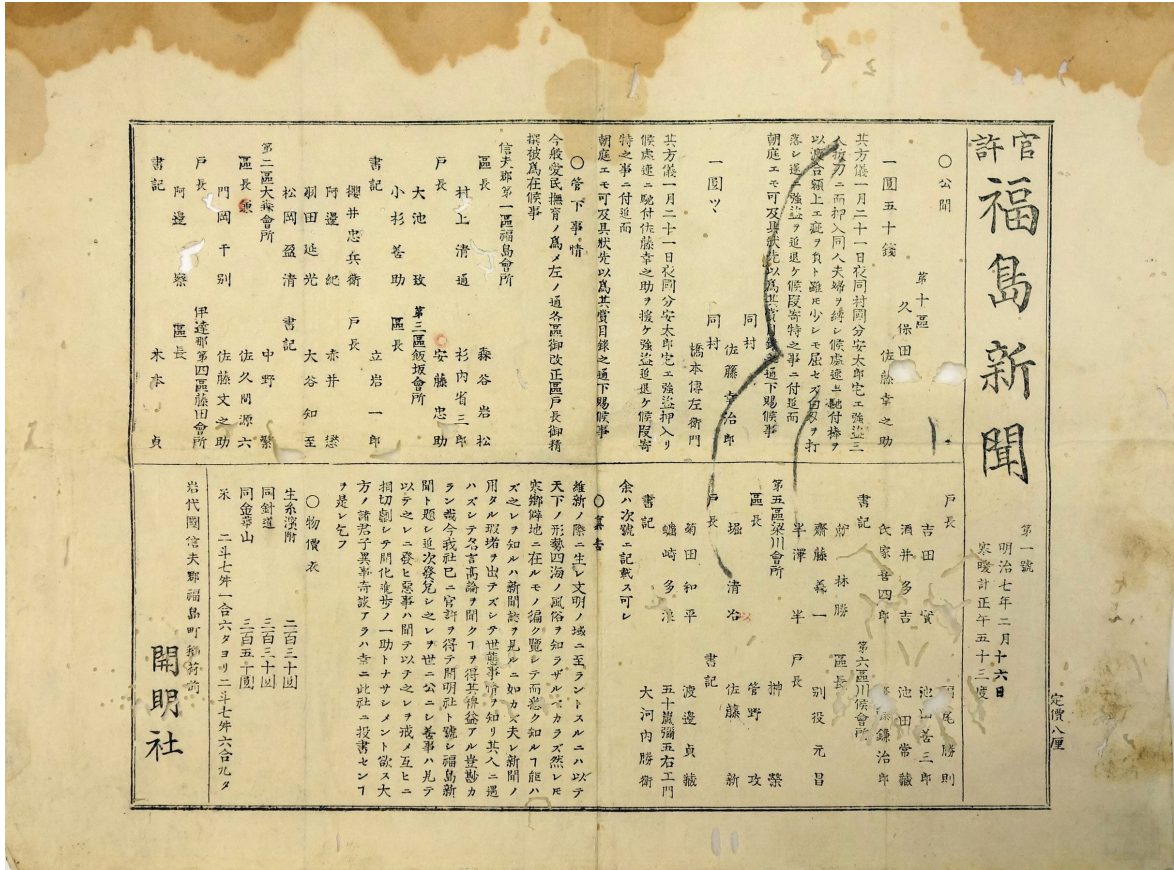 官許
福島新聞
第一號
明治七年二月十六日
寒暖計正午五十三度
定價八厘
○公聞
第十區
久保田
佐藤幸之助
一圓五十錢
其方儀一月二十一日夜同村國分安太郎宅エ強盗三
人抜刀ニ而押入同人夫婦ヲ縛レ候處速ニ馳付棒ヲ
以渡合額上エ疵ヲ負ト雖モ少レモ屈セズ白刄ヲ打
落レ遂ニ強盗ヲ追退ケ候段寄特之事ニ付追而
朝庭エモ可及具狀先以爲其賞目錄之通下賜候事
同村
佐藤幸治郎
同村
橋本傳左衛門
一圓ツヽ
其方儀一月二十一日夜國分安太郎宅エ強盗押入リ
候處速ニ馳付佐藤幸之助ヲ援ケ強盗追退ケ候段寄
特之事ニ付追而
朝庭エモ可及具狀先以爲其賞目錄之通下賜候事
○管下事情
今般愛民撫育ノ爲メ左ノ通各區御改正區戸長御精
撰被爲在候事
信夫郡第一區福島會所
區長
村上清通
戸長
大池致
小杉善助
書記
櫻井忠兵衛
阿邉紀
羽田延光
松岡盈清
第二區大森會所
區長兼
門岡千別
戸長
阿邉察
書記
森谷岩松
杉内省三郎
安藤忠助
第三區飯坂會所
區長
立岩一郎
戸長
赤井懋
大谷知至
書記
中野繁
佐久間源六
佐藤文之助
伊達郡第四區藤田會所
區長
木本貞
戸長
吉田實
酒井多吉
氏家喜四郎
書記
林勝
齋藤義一
半澤半
第五區梁川會所
區長
堀清治
戸長
菊田和平
蠣崎多浪
書記
尾勝則
池田常藏
鎌治郎
第六區川俣會所
區長
別役元昌
戸長
榊榮
管野攻
佐藤新
書記
渡邊貞藏
五十嵐彌五右エ門
大河内勝衛
余ハ次號ニ記載ス可レ
○禀告
維新ノ際ニ生レ文明ノ域ニ至ラントスルニハ以テ
天下ノ形勢四海ノ風俗ヲ知ラザルベカラズ然レモ
寒鄉僻地ニ在ルモノ徧ク覽レテ而悉ク知ルヿ能ハ
ズ之レヲ知ルハ新聞誌ヲ見ルニ如カズ夫レ新聞ノ
用タル瑕堵ヲ出テズレテ世態事情ヲ知リ其人ニ遇
ハズレテ名言高論ヲ聞クヿヲ得其裨益アル豈尠カ
ラン哉今我社已ニ官許ヲ得テ開明社ト號レ福島新
聞ト題レ逐次發兌レ之レヲ世ニ公ニレ善事ハ見テ
以テ之レニ發ヒ惡事ハ聞テ以テ之レヲ戒メ互ヒニ
相切劘レテ開化進歩ノ一助トナサレメント欲ス大
方ノ諸君子異事奇談アラハ幸ニ此社ニ投書センヿ
ヲ是レ乞フ
○物價表
生糸濱附 二百三十圓
同針道 三百三十圓
同金華山 三百五十圓
米 二斗七升一合六タヨリ二斗七升六合九タ
岩代國信夫郡福島町稻荷前
開明社